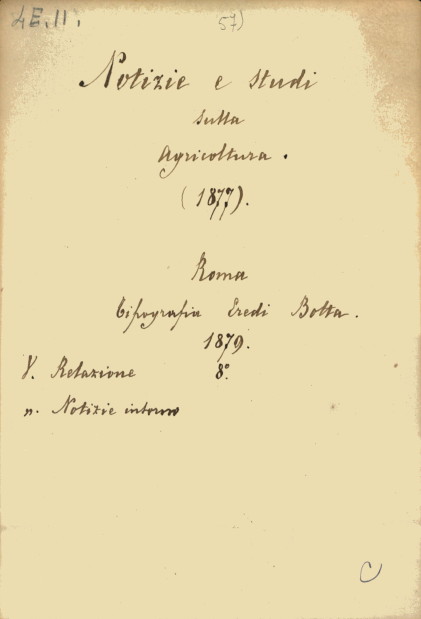 4E.11. 57)
Notizie e studi
sulla
Agricoltura.
(1877).
Roma
Tipografia Eredi Botta.
1879.
V. Relazione 8°.
n. Notizie intorno
C